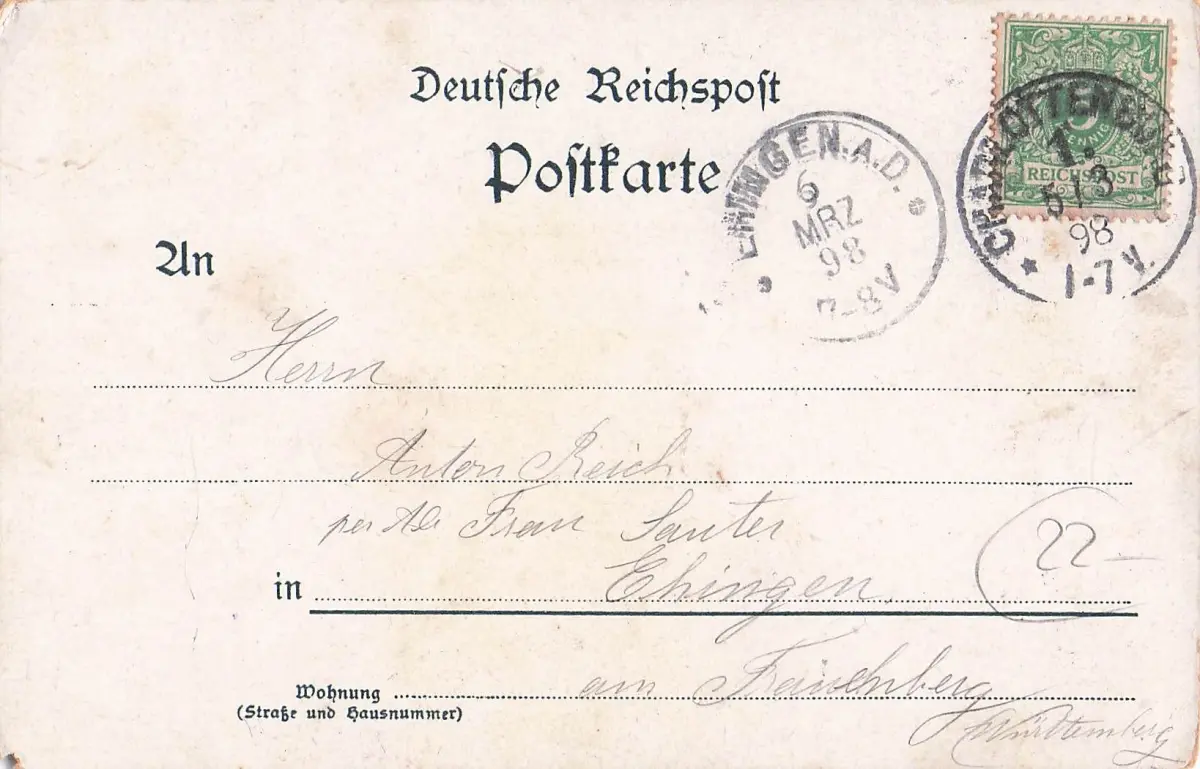 Deutsche Reichspost
Postkarte
CHARLOTTENBURG
1.
5/3
98
1-7 V.
5
PFENNIG
REICHSPOST
EHINGEN.A.D.
6
MRZ
98
7-8V
An
Herrn
Anton Reich
per Frau Sauter
in Ehingen
22-
Wohnung am
(Straße und Hausnummer)
Württemberg